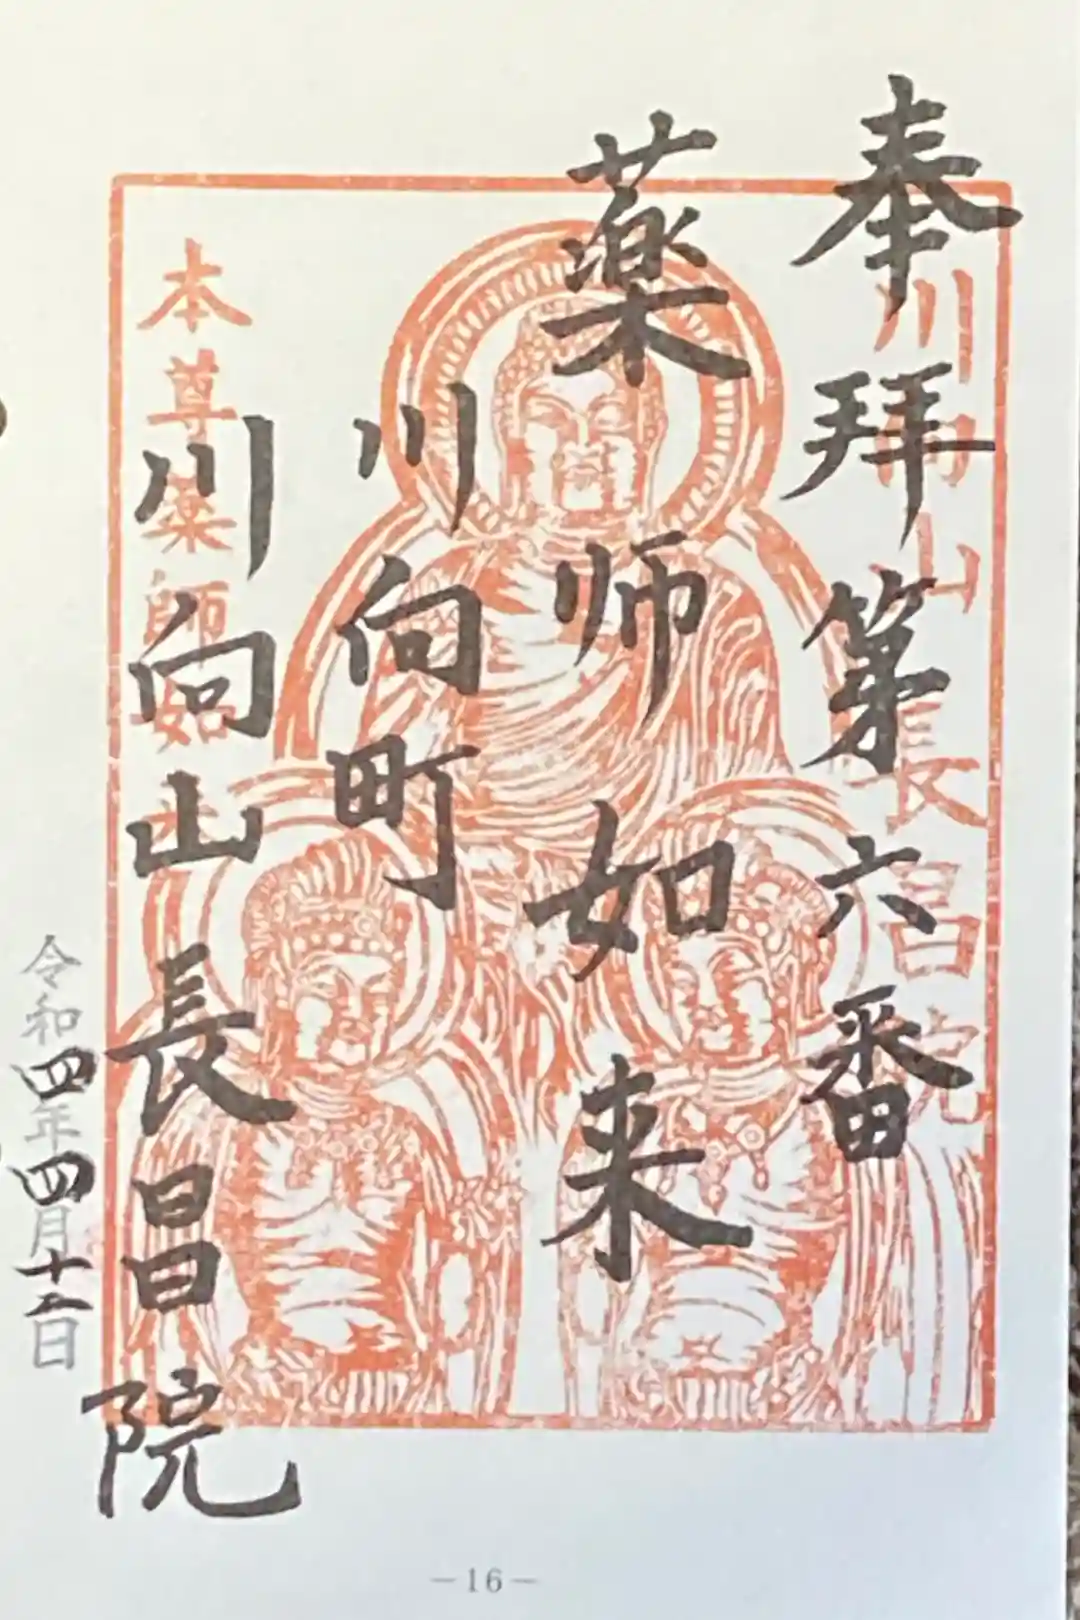 奉拝第六番
薬师如来
川向町
川向山長昌院
令和四年四月十一日
川向山長昌院
本尊薬師如来
－16－